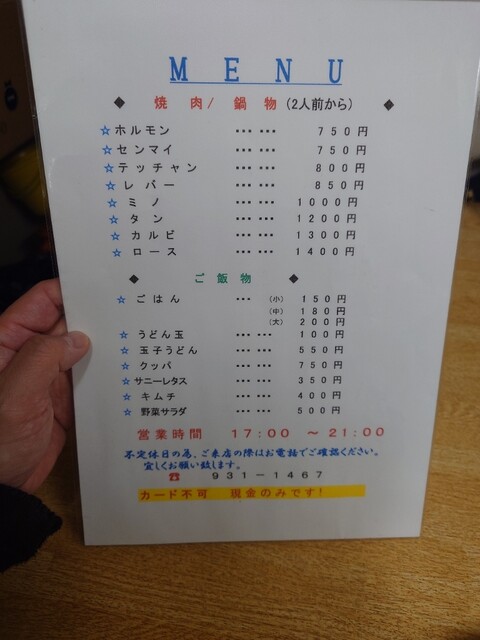 MENU
◆ 焼肉/鍋物(2人前から) ◆
☆ホルモン ・・・・・・ 750円
☆センマイ ・・・・・・ 750円
☆テッチャン ・・・・・・ 800円
☆レバー ・・・・・・ 850円
☆ミノ ・・・・・・ 1000円
☆タン ・・・・・・ 1200円
☆カルビ ・・・・・・ 1300円
☆ロース ・・・・・・ 1400円
◆ ご飯物 ◆
☆ごはん ・・・ (小) 150円
(中) 180円
(大) 200円
☆うどん玉 ・・・・・・ 100円
☆玉子うどん ・・・・・・ 550円
☆クッパ ・・・・・・ 750円
☆サニーレタス ・・・・・・ 350円
☆キムチ ・・・・・・ 400円
☆野菜サラダ ・・・・・・ 500円
営業時間 17:00 ~21:00
不定休日の為、ご来店の際はお電話でご確認ください。
宜しくお願い致します。
☎ 931-1467
カード不可 現金のみです!